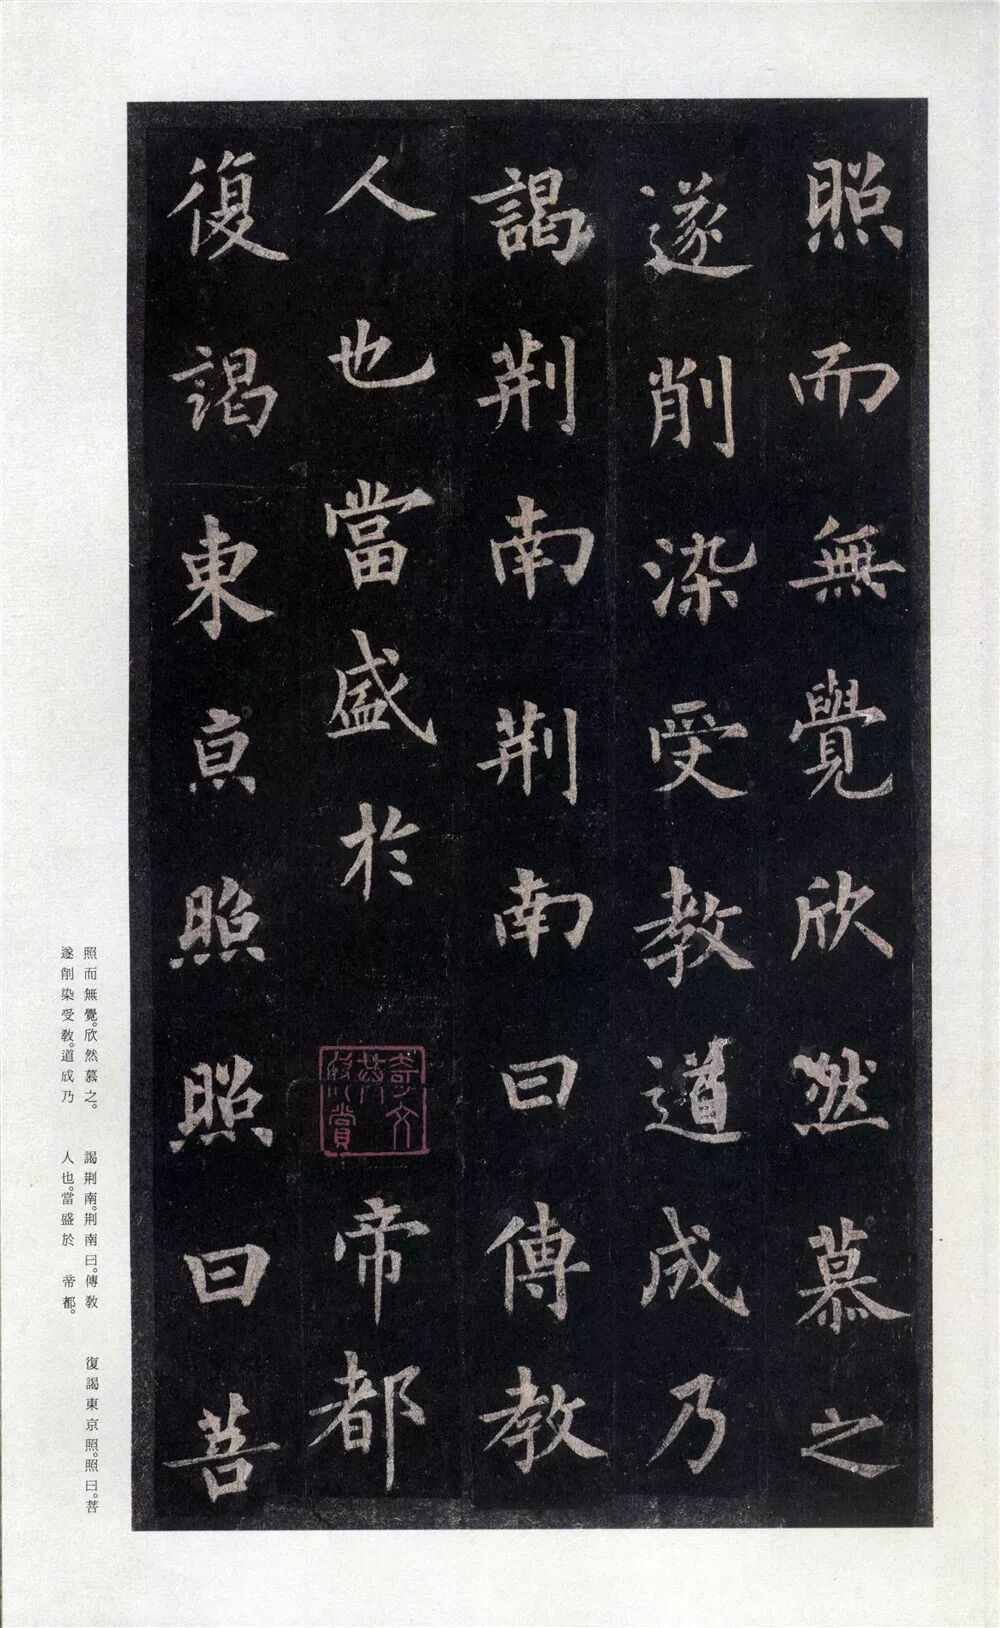 照而無覺欣然慕之
遂削染受教道成乃
謁荆南荆南曰傳教
人也當盛於帝都
復謁東京照照曰菩
照而無覺。欣然慕之。
遂削染受教。道成乃
謁荆南。荆南曰。傳教
人也。當盛於 帝都。
復謁東京照。照曰。菩